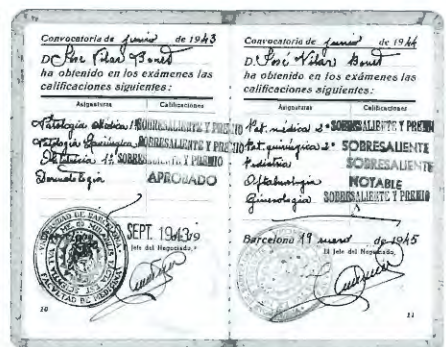 Convocatoria de junio de 1943
D. José Vilar Bonet
ha obtenido en los exámenes las
calificaciones siguientes:
Asignaturas Calificaciones
Patología Médica 1ª SOBRESALIENTE Y PREMIO
Patología Quirúrgica SOBRESALIENTE Y PREMIO
Obstetricia 1ª SOBRESALIENTE Y PREMIO
Dermatología APROBADO
SEPT. 1943
Jefe del Negociado,
UNIVERSIDAD DE BARCELONA
FACULTAD DE MEDICINA
10
Convocatoria de junio de 1944
D. José Vilar Bonet
ha obtenido en los exámenes las
calificaciones siguientes:
Asignaturas Calificaciones
Pat. médica 2ª SOBRESALIENTE Y PREMIO
Pat. quirúrgica 2ª SOBRESALIENTE
Pediatria SOBRESALIENTE
Oftalmología NOTABLE
Ginecología SOBRESALIENTE Y PREMIO
Barcelona 19 enero de 1945
El Jefe del Negociado,
11